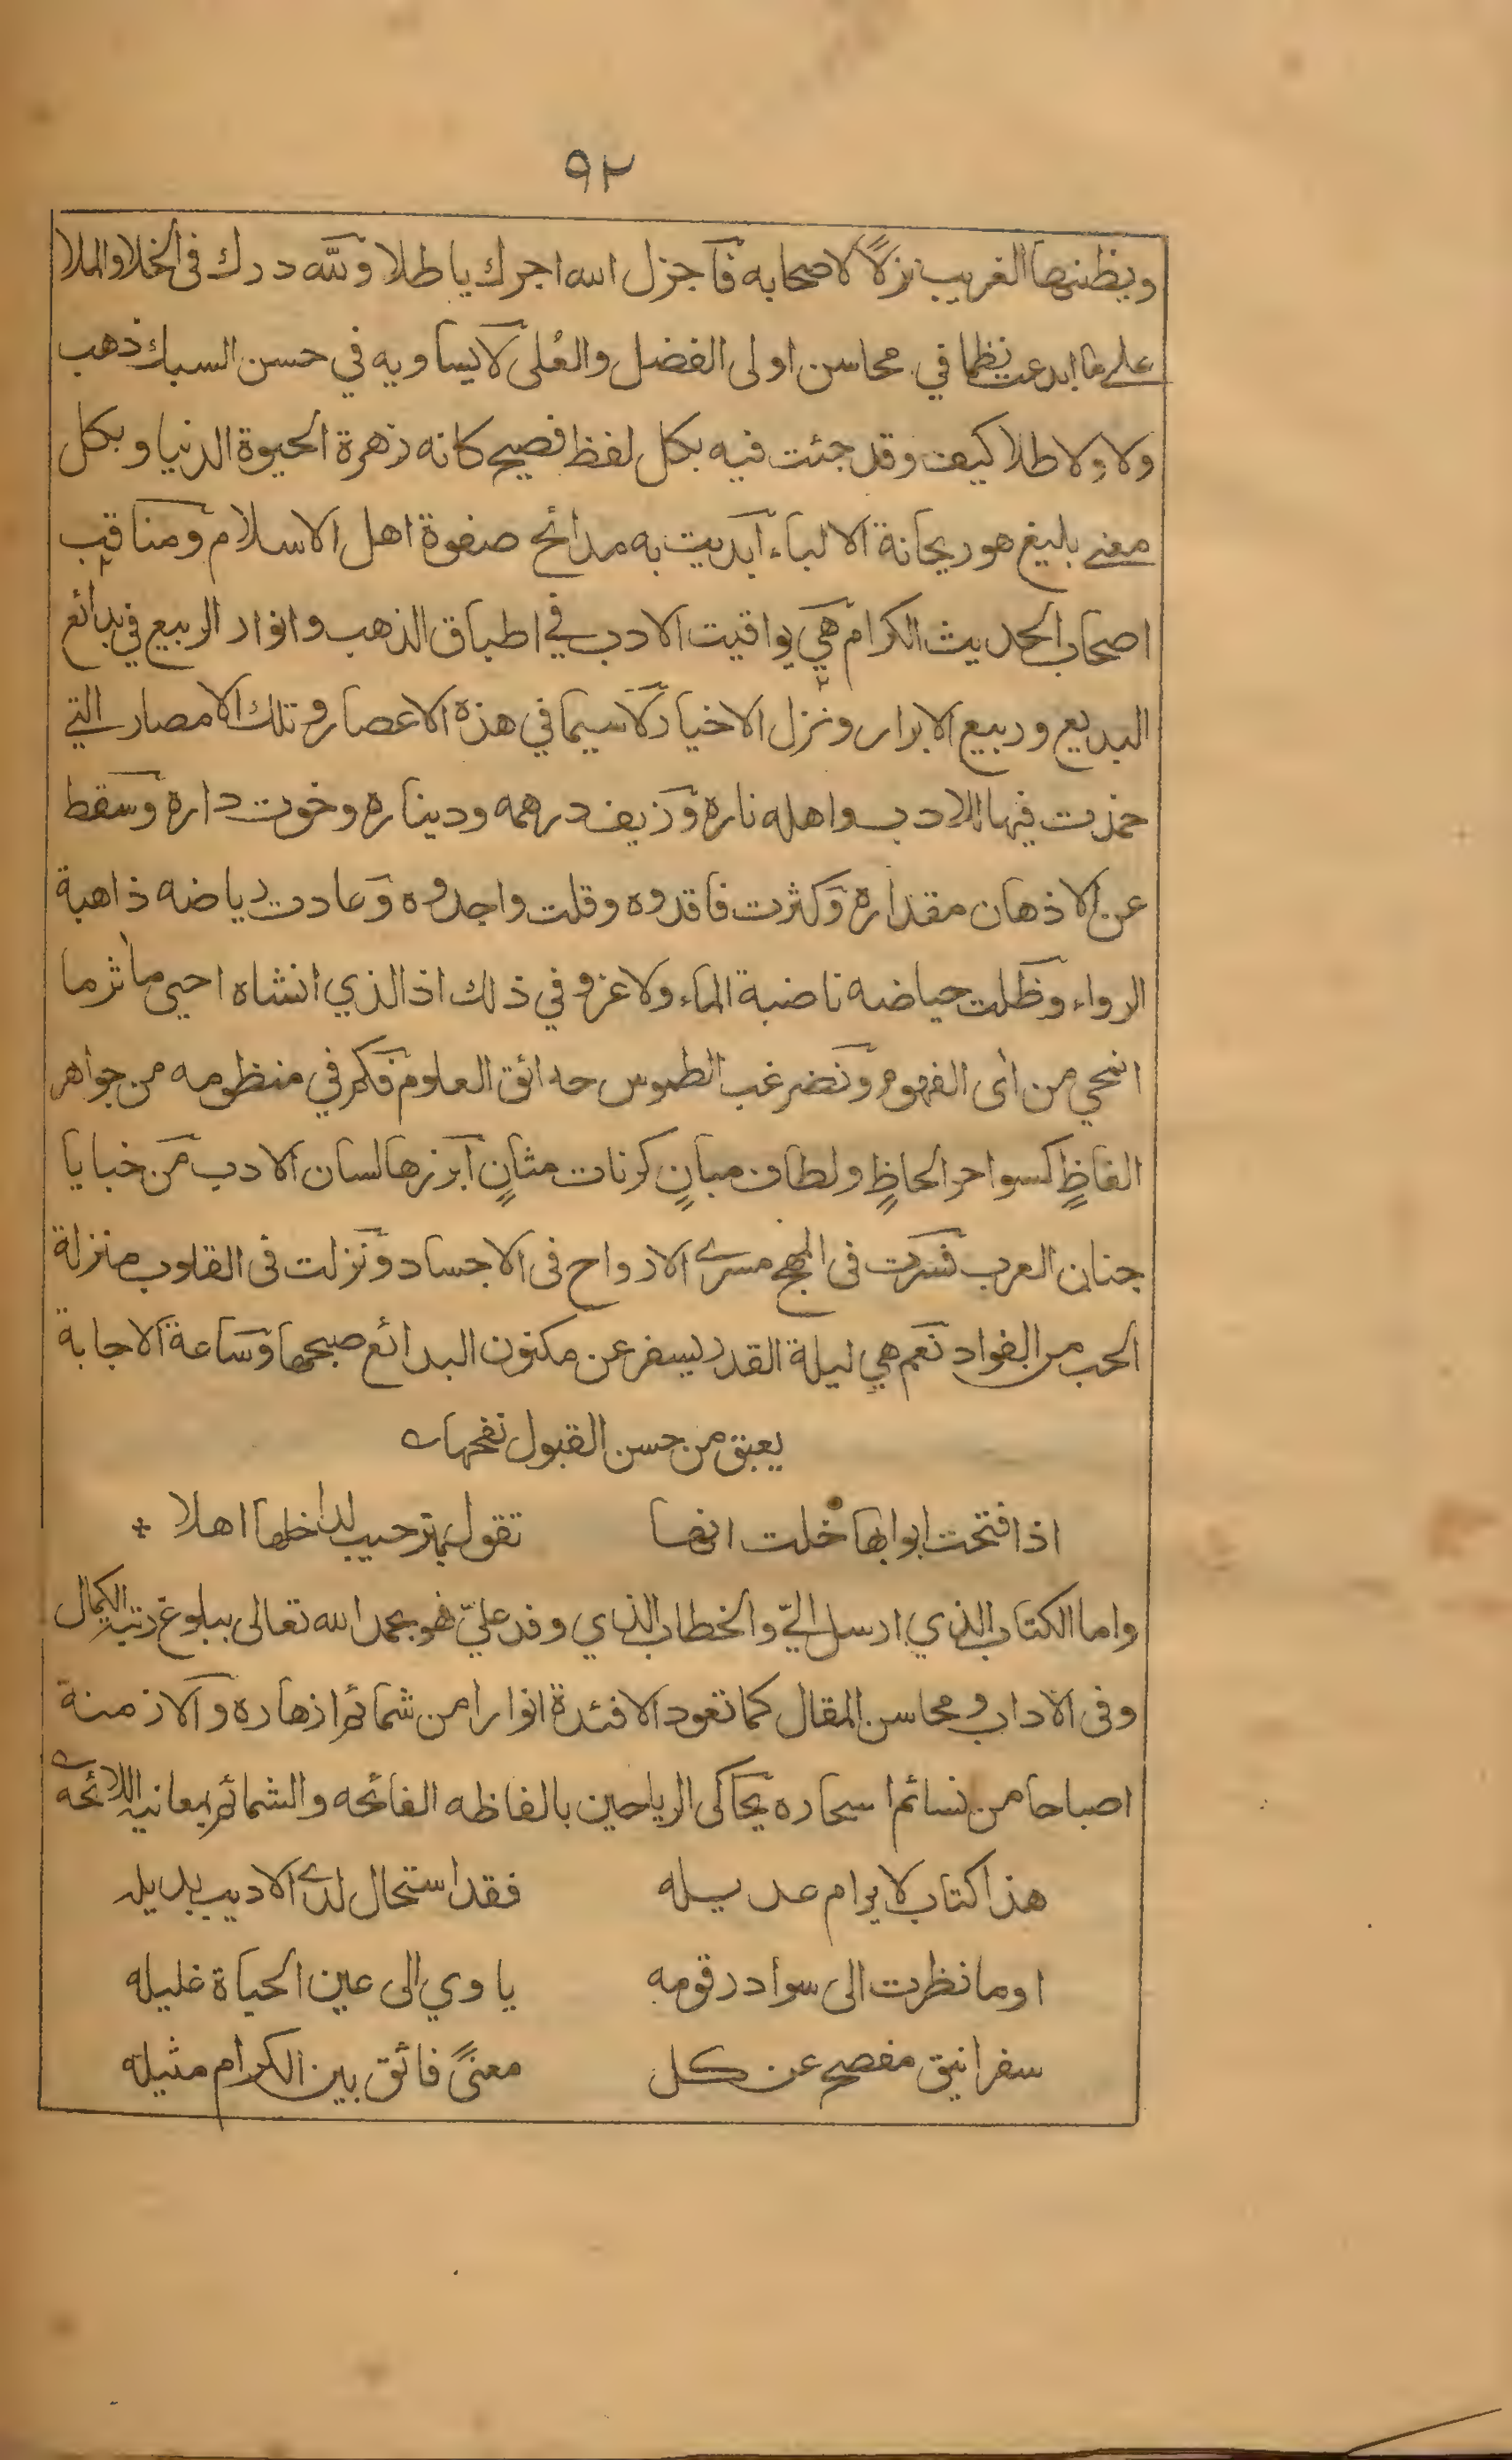 ٩٢
ويظنها الغريب نزلاً لاصحابه فاجزل الله اجرك يا طلا ولله درك فى الخلا والملا
على ما ابدعت نظما في محاسن اولى الفضل والعُلى لا يساويه في حسن السبك ذهب
ولا ولا طلا كيف وقد جئت فيه بكل لفظ فصيح كانه زهرة الحيوة الدنيا و بكل
معنے بليغ هو ريحانة الالباء ابديت به مدائح صفوة اهل الاسلام ومناقب
اصحاب الحديث الكرام هي يواقيت الادب في اطباق الذهب وانوار الربيع في بدائع
البديع وربيع الابرار ونزل الاخيار لا سيما في هذه الاعصار و تلك الامصار التي
خمدت فيها للادب واهله ناره وزيف درهمه وديناره وخوت داره وسقط
عن الاذهان مقداره وكثرت فاقدوه وقلت واجدوه وعادت رياضه ذاهبة
الرواء وظلت حياضه ناضبة الماء ولا غرو في ذلك اذ الذي انشاه احيى مأثر ما
انمحي من أى الفهوم ونضر غب الطموس حدائق العلوم فكم في منظومه من جواهر
الفاظٍ كسواحر الحاظٍ ولطاف مبانٍ كرنات مثانٍ ابرزها لسان الادب من خبايا
جنان العرب فسرت فى المهج مسرے الارواح فى الاجساد ونزلت فى القلوب منزلة
الحب من الفواد نعم هي ليلة القدر يسفر عن مكنون البدائع صبحها وساعة الاجابة
يعبق من حسن القبول نفحها
اذا فتحت ابوابها خلت انها تقول بترحيب لداخلها اهلا
واما الكتاب الذي ارسل اليّ والخطاب الذي وفد عليّ فهو بحمد الله تعالى ببلوغ رتبة الكمال
وفى الاداب و محاسن المقال كما تعود الافئدة انوارا من شمائم ازهاره والازمنة
اصباحا من نسائم اسحاره يحاكى الرياحين بالفاظه الفائحه والشمائم بمعانيه اللائحه
هذا كتاب لا يرام عديله فقد استحال لدے الاديب بديله
اوما نظرت الى سواد رقومه ياوي الى عين الحياة غليله
سفر انيق مفصح عن كل معنىً فائق بين الكرام مثيله